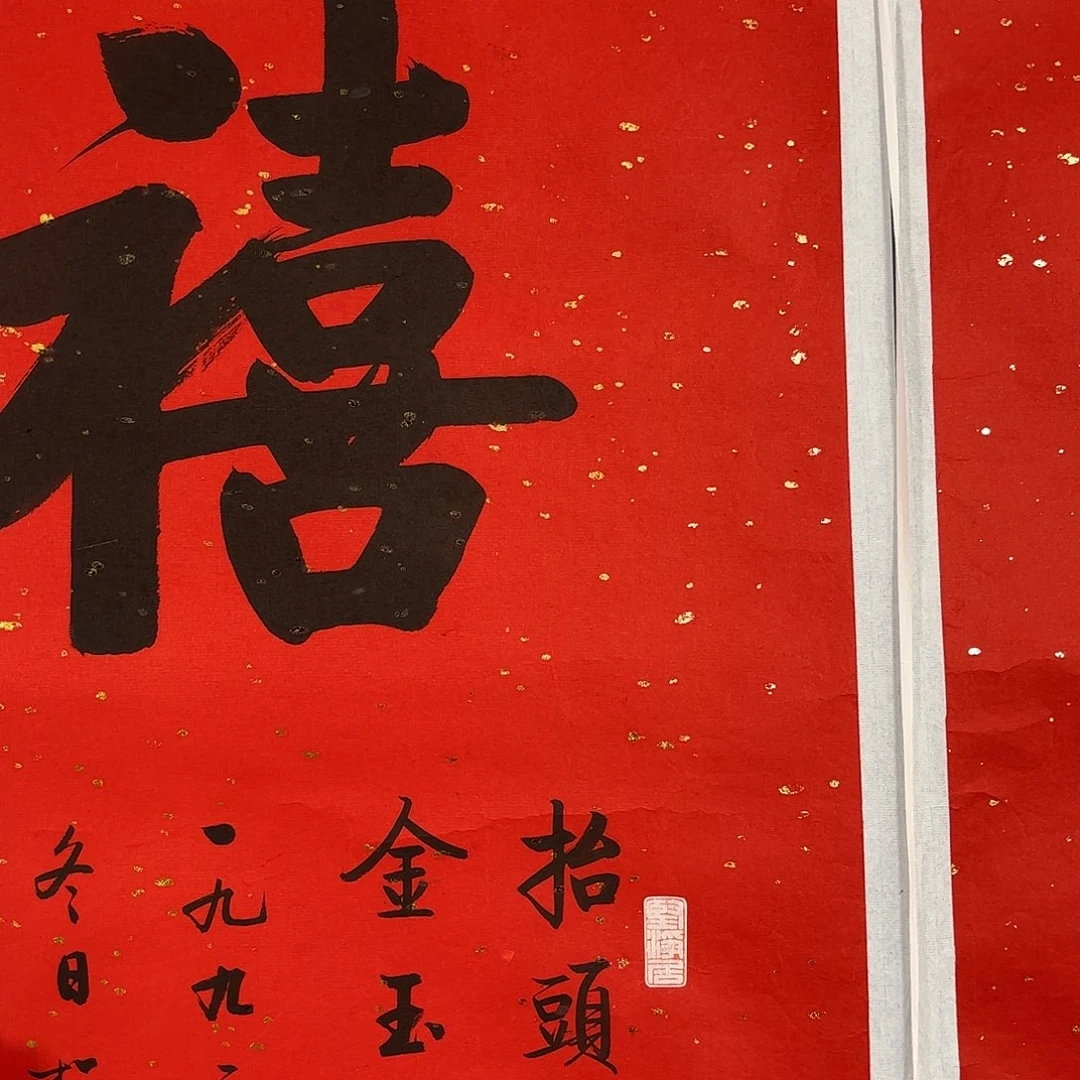 禧
抬頭
金玉
一九九
冬日